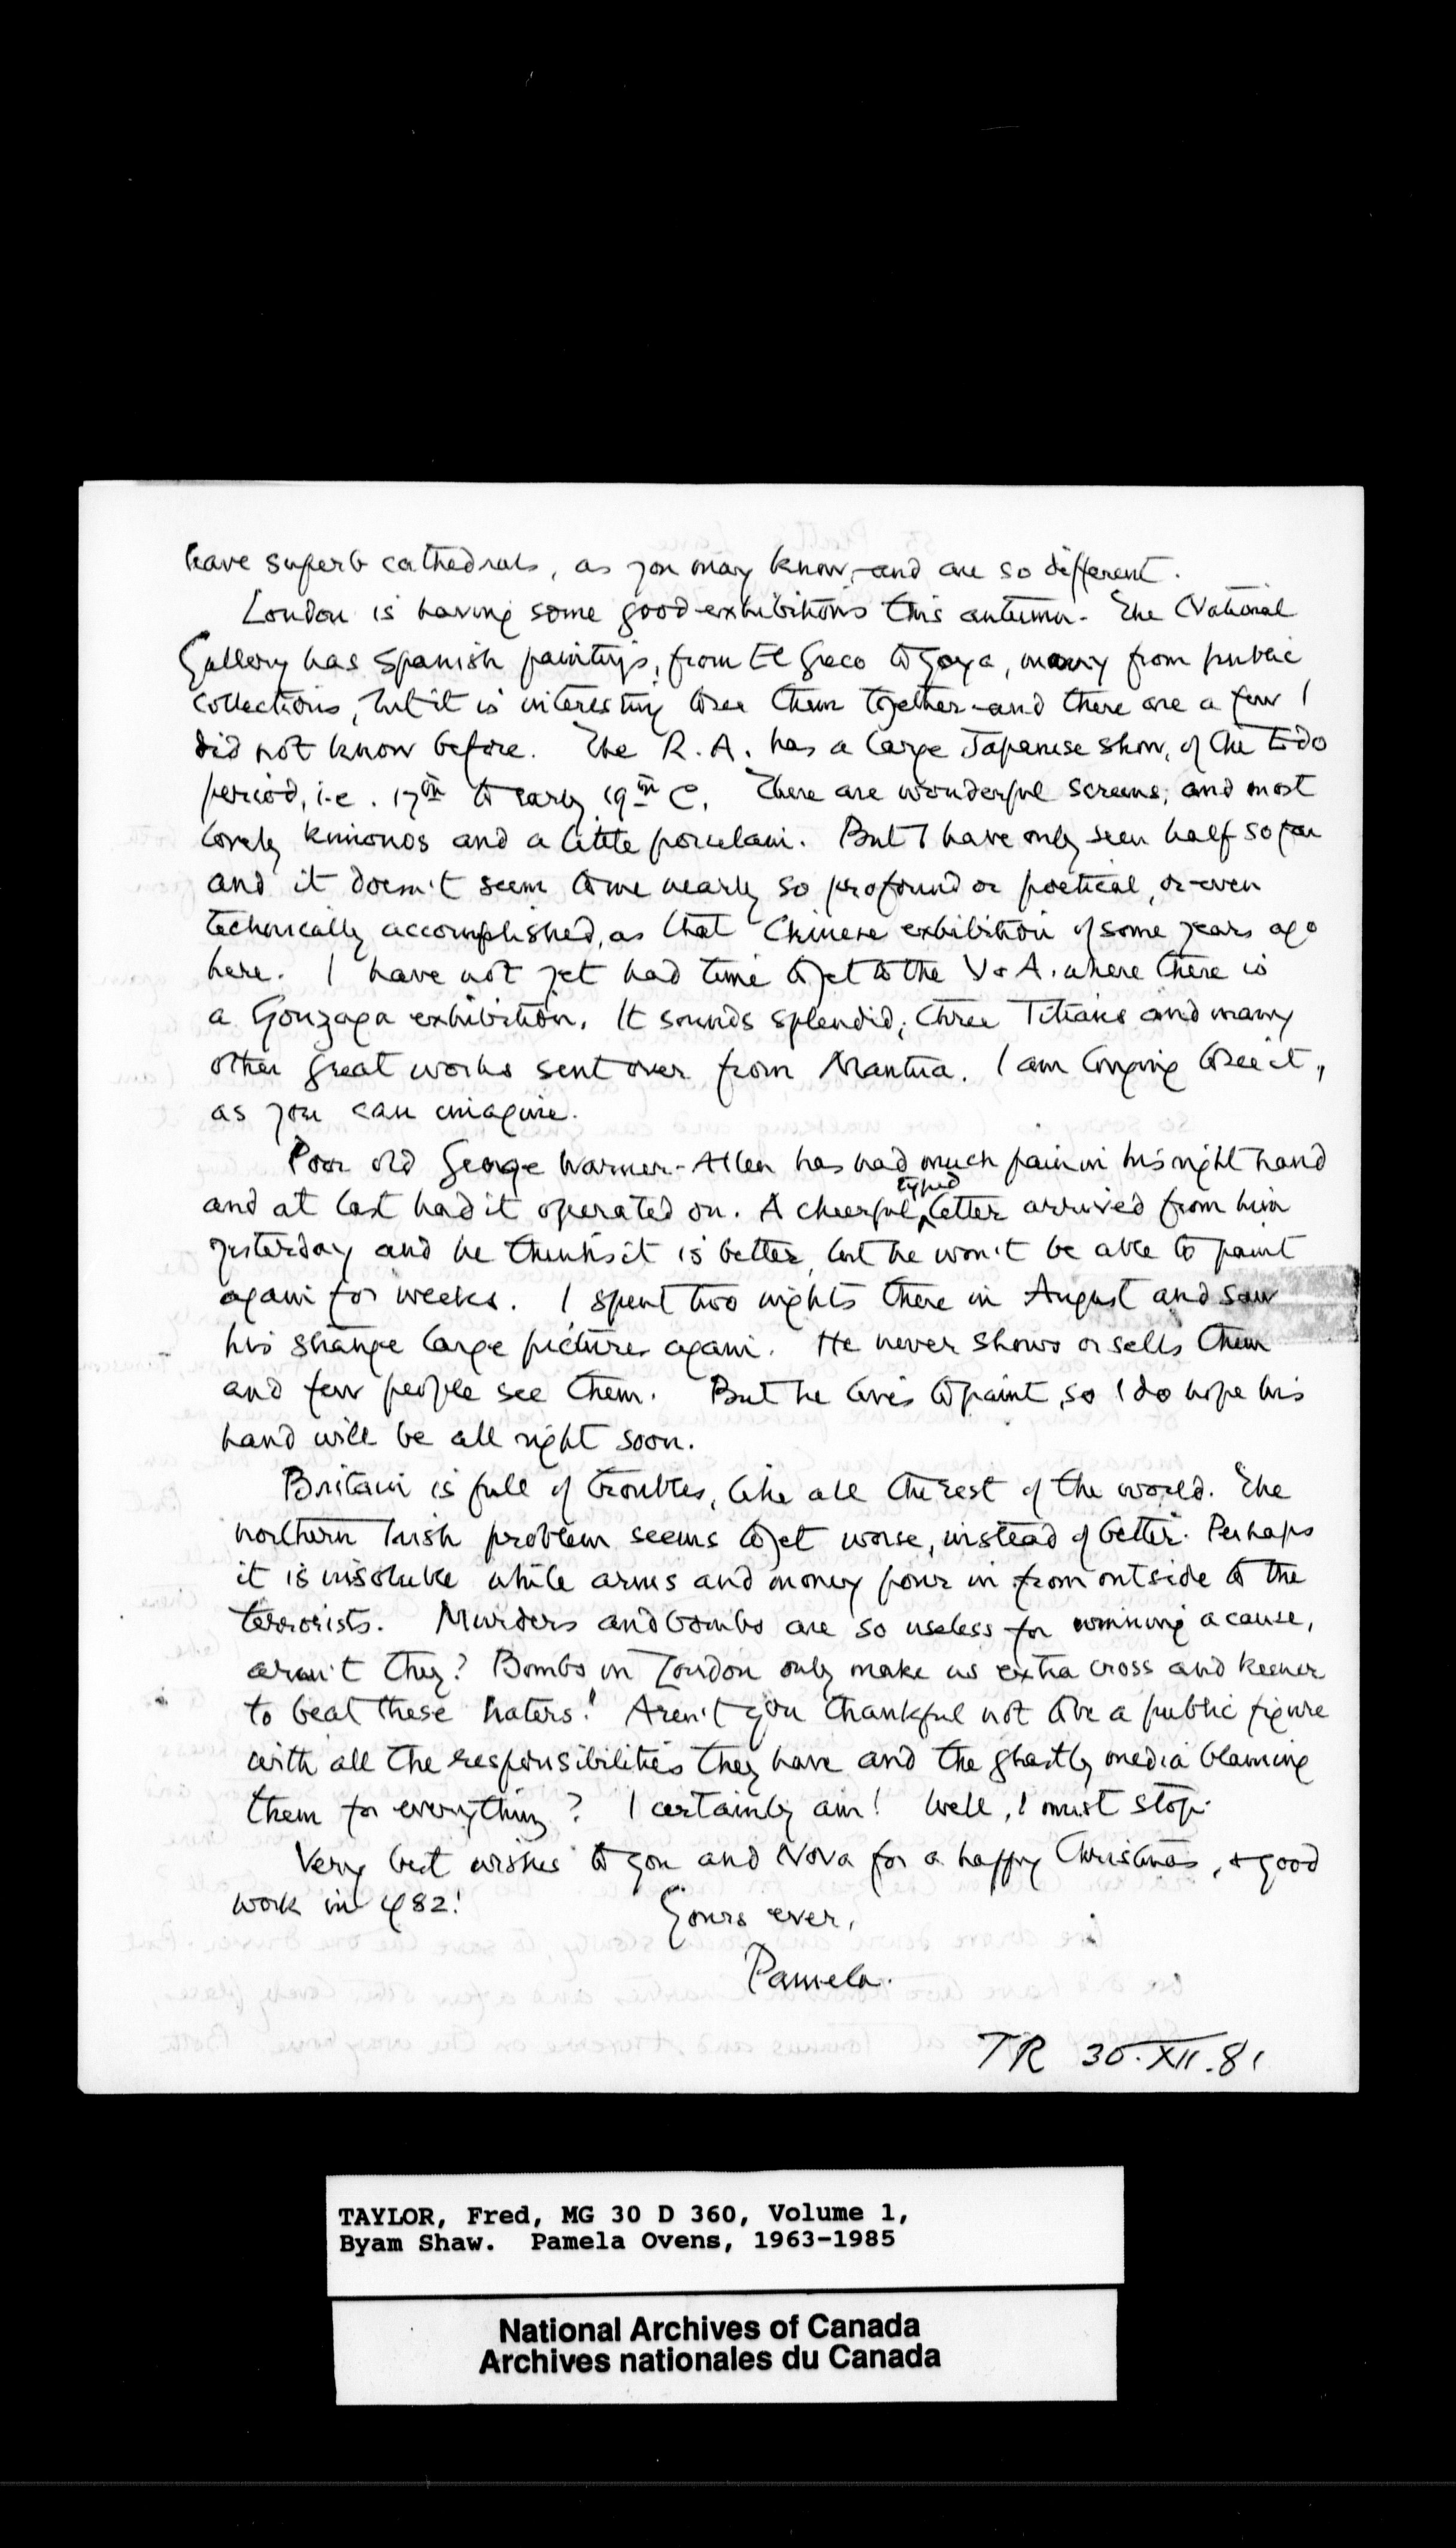 have superb cathedrals, as you may know, and are so different.
London is having some good exhibitions this autumn. The National
Gallery has Spanish paintings, from El Greco to Goya, many from public
collections, but it is interesting to see them together and there are a few I
did not know before. The R.A. has a large Japanese show, of the Edo
period, i.e. 17th to early 19th C. There are wonderful screens, and most
lovely kimonos and a little porcelain. But I have only seen half so far
and it doesn't seem to me nearly so profound or poetical, or even
technically accomplished, as that Chinese exhibition of some years ago
here. I have not yet had time to get to the V & A. where there is
a Gonzaga exhibition. It sounds splendid; three Titians and many
other great works sent over from Mantua. I am longing to see it,
as you can imagine.
Poor old George Warner-Allen has had much pain in his right hand
and at last had it operated on. A cheerful typed letter arrived from him
yesterday and he thinks it is better, but he won't be able to paint
again for weeks. I spent two nights there in August and saw
his strange large pictures again. He never shows or sells them
and few people see them. But he loves to paint, so I do hope his
hand will be all right soon.
Britain is full of troubles, like all the rest of the world. The
northern Irish problem seems to get worse, instead of better. Perhaps
it is insoluble while arms and money pour in from outside to the
terrorists. Murders and bombs are so useless for winning a cause,
aren't they? Bombs in London only make us extra cross and keener
to beat these haters! Aren't you thankful not to be a public figure
with all the responsibilities they have and the ghastly media blaming
them for everything? I certainly am! Well, I must stop.
Very best wishes to you and Nova for a happy Christmas, & good
work in 1982!
Yours ever,
Pamela.
TR 30.XII.81
TAYLOR, Fred, MG 30 D 360, Volume 1,
Byam Shaw. Pamela Ovens, 1963-1985
National Archives of Canada
Archives nationales du Canada